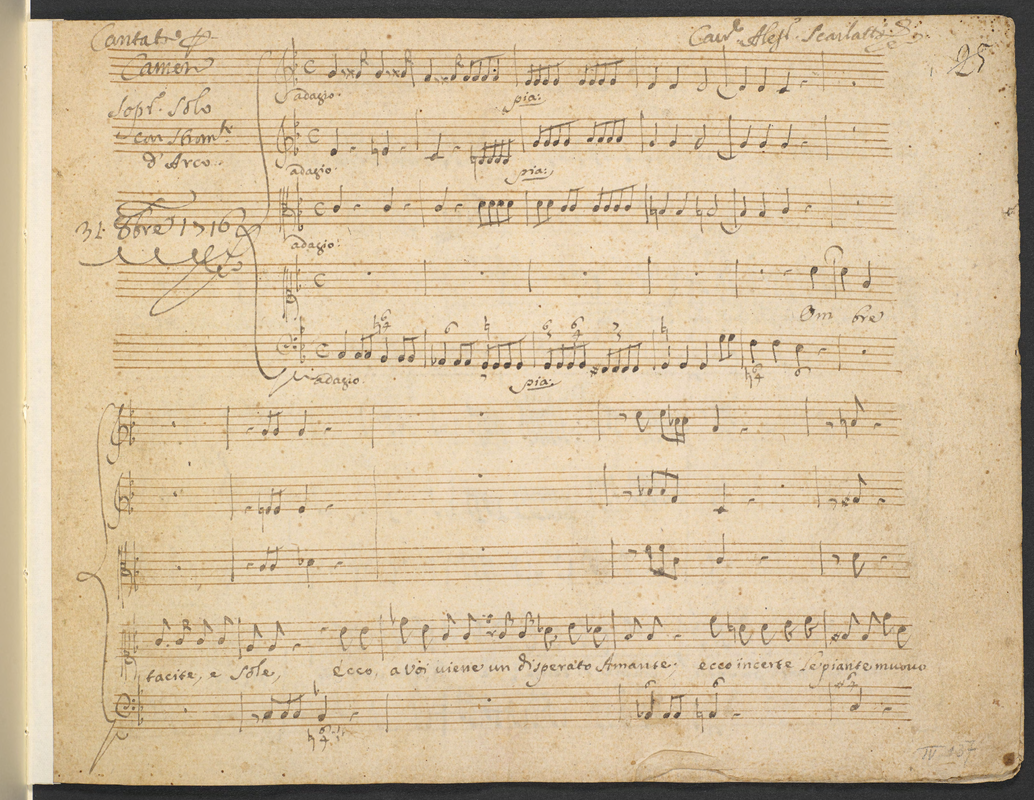 Cantata
Cav.r Aless. Scarlatti
25
Camera
Sop.o Solo
con Strom.ti
d'Arco.
31: 8bre 1716
adagio.
pia:
adagio
pia:
adagio:
Om bre
adagio.
pia:
tacite, e Sole, ecco, a voi viene un disperato Amante, ecco incerte le piante muovo